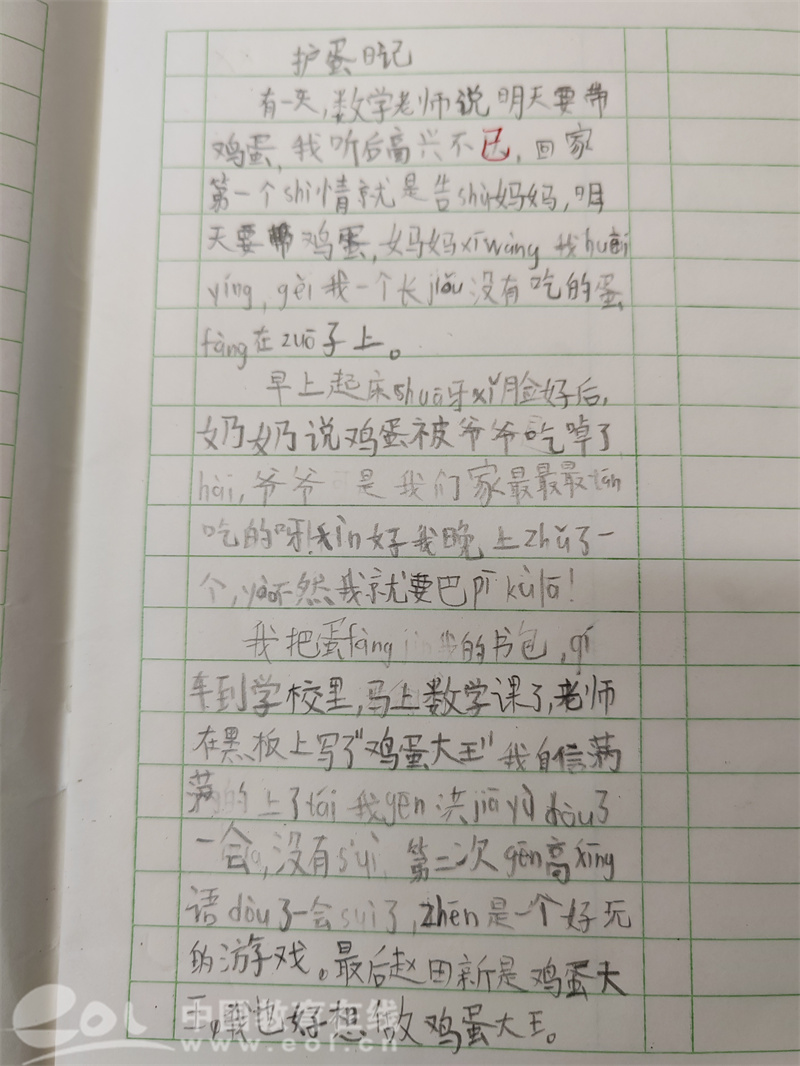 护蛋日记
有一天,数学老师说明天要带
鸡蛋,我听后高兴不已,回家
第一个shì情就是告shù妈妈,明
天要带鸡蛋,妈妈xīwàng我huāi
yíng,gèi我一个长jiǎo没有吃的蛋
fàng在zuō子上。
早上起床shuā牙xǐ脸好后,
奶奶说鸡蛋被爷爷吃掉了
hài,爷爷可是我们家最最最tān
吃的呀!xìn好我晚上zhǔ了一
个,yào不然我就要巴pī kù lā!
我把蛋fàng jìn我的书包,qí
车到学校里,马上数学课了,老师
在黑板上写了"鸡蛋大王"我自信满
满的上了tái我gēn洪jiā yǔ dòu了
一会,没有suì,第二次gēn高xīng
语dòu了一会suì了,zhēn是一个好玩
的游戏。最后赵田新是鸡蛋大
王,我也好想做鸡蛋大王。
eol 中国教育在线
www.eol.cn